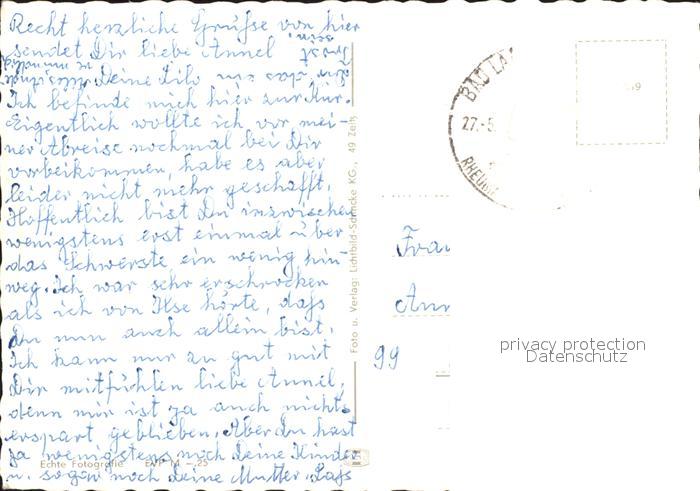 Recht herzliche Grüße von hier
sendet Dir liebe Annel
Deine Lilo
Ich befinde mich hier zur Kur.
Eigentlich wollte ich vor mei-
ner Abreise nochmal bei Dir
vorbeikommen, habe es aber
leider nicht mehr geschafft.
Hoffentlich bist Du inzwischen
wenigstens erst einmal über
das Schwerste ein wenig hin-
weg. Ich war sehr erschrocken
als ich von Ilse hörte, daß
Du nun auch allein bist.
Ich kann nur zu gut mit
Dir mitfühlen liebe Annel,
denn mir ist ja auch nichts
erspart geblieben. Aber Du hast
ja wenigstens noch Deine Kinder
u. sogar noch Deine Mutter. Laß
Echte Fotografie EVP M -.25
Foto u. Verlag: Lichtbild-Schincke KG., 49 Zeitz
BAD LA
27.-5.
Frau
99
privacy protection
Datenschutz